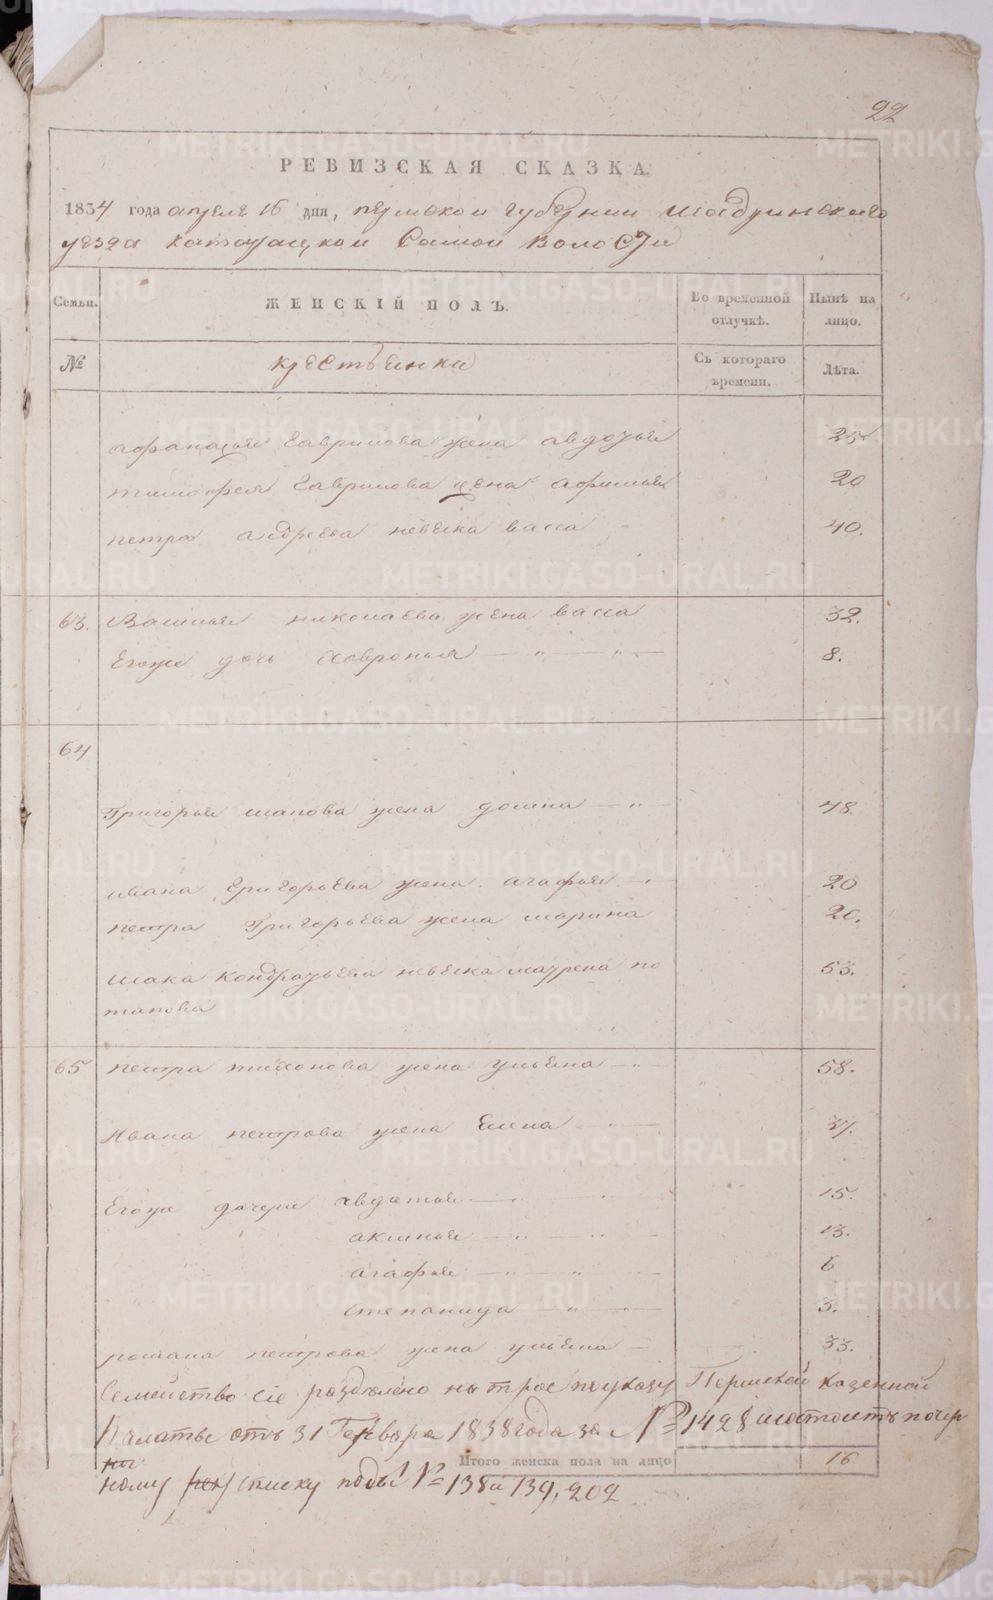 22
РЕВИЗСКАЯ СКАЗКА
1834 года апреля 16 дня, пермской губернии Шадринскаго
уезда катайской Самой волости
Семьи. ЖЕНСКІЙ ПОЛЪ. Во временной отлучкѣ. Нынѣ на лицо.
№ крестьянки Съ котораго времени. Лѣта.
афанасья Гаврилова жена авдотья 25
тимофея Гаврилова жена афимья 20
петра андреева невеска васса 40.
63. Василья николаева жена васса 32.
Егоже дочь Ховронья 8.
64
Григорья жена домна 48.
ивана Григорьева жена агафья 20
петра Григорьева жена марина 20.
исака кондратьева невеска маурена по 53.
тапова
65 петра тихонова жена ульяна 58.
Ивана петрова жена Елена 37.
Егоже дочери авдотья 15.
акилина 13.
агафья 6
степанида 3.
романа петрова жена ульяна 33.
Семейство сіе раздѣлено на трое поуказу Пермской казенной
Палаты отъ 31 Генваря 1838 года за № 1428 и состоитъ почер
Итого женска пола на лицо 16
ному списку подъ № 138 и 139, 202
METRIKI.GASO-URAL.RU